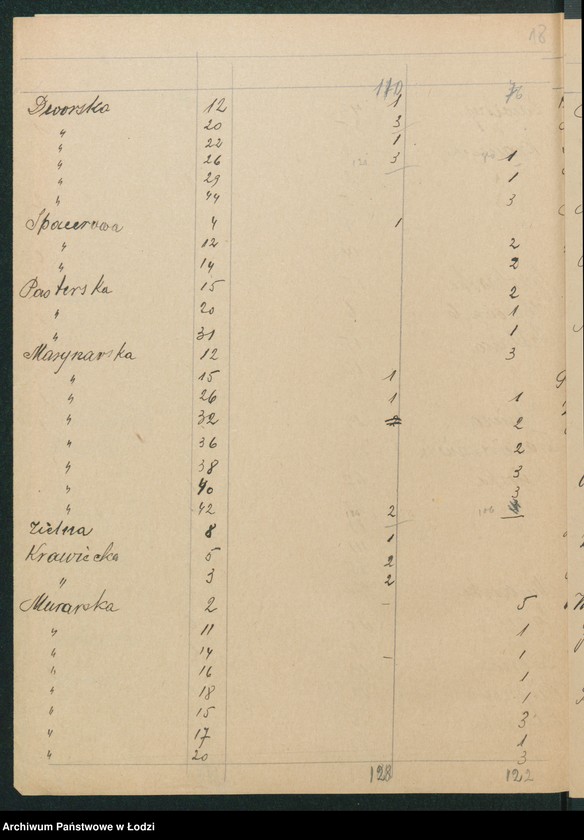 18
110 76
Dworska 12 1
" 20 3
" 22 1
" 26 3 1
" 29 1
" 44 3
Spacerowa 4 1
" 12 2
" 14 2
Pasterska 15 2
" 20 1
" 31 1
Marynarska 12 3
" 15 1
" 26 1 1
" 32 2
" 36 2
" 38 3
" 40 3
" 42 2
Zielna 8 1
Krawiecka 5 2
" 3 2
Murarska 2 - 5
" 11 1
" 14 - 1
" 16 1
" 18 1
" 15 3
" 17 1
" 20 3
128 122
Archiwum Państwowe w Łodzi